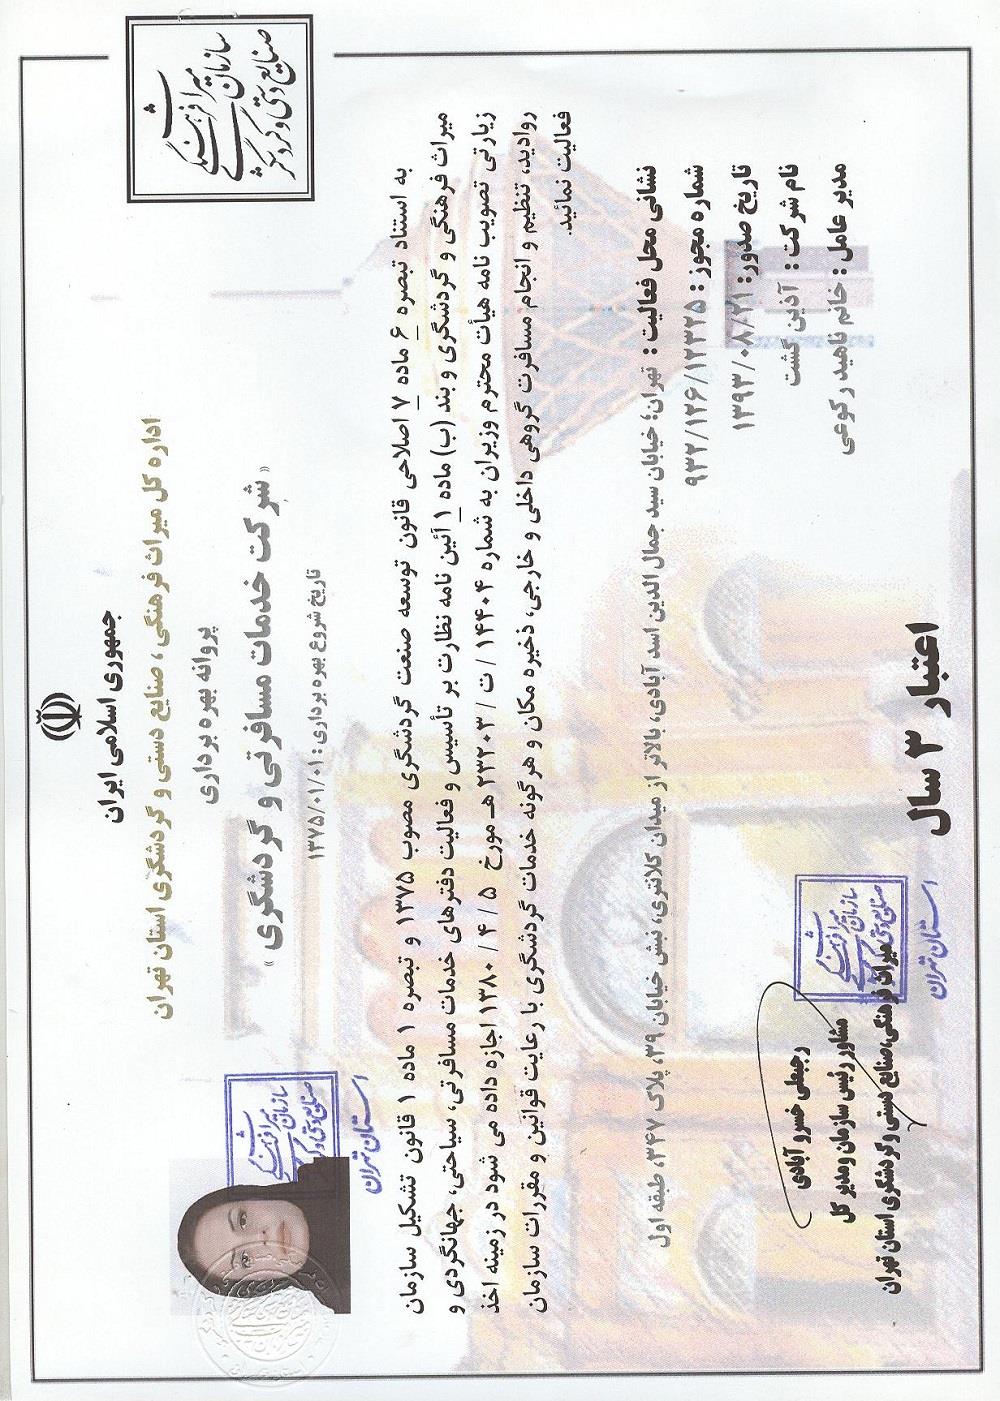 سازمان میراث فرهنگی
صنایع دستی و گردشگری
جمهوری اسلامی ایران
اداره کل میراث فرهنگی ، صنایع دستی و گردشگری استان تهران
پروانه بهره برداری
« شرکت خدمات مسافرتی و گردشگری »
تاریخ شروع بهره برداری : ۱۳۷۵/۰۱/۰۱
به استناد تبصره ۶ ماده ۷ اصلاحی قانون توسعه صنعت گردشگری مصوب ۱۳۷۵ و تبصره ۱ ماده ۱ قانون تشکیل سازمان
میراث فرهنگی و گردشگری و بند (ب) ماده ۱ آئین نامه نظارت بر تأسیس و فعالیت دفترهای خدمات مسافرتی، سیاحتی، جهانگردی و
زیارتی تصویب نامه هیأت محترم وزیران به شماره ۱۴۴۰۴ / ت / ۲۳۲۰۳ هـ مورخ ۵ / ۴ / ۱۳۸۰ اجازه داده می شود در زمینه اخذ
روادید، تنظیم و انجام مسافرت گروهی داخلی و خارجی، ذخیره مکان و هرگونه خدمات گردشگری با رعایت قوانین و مقررات سازمان
فعالیت نمائید.
نشانی محل فعالیت : تهران؛ خیابان سید جمال الدین اسد آبادی، بالاتر از میدان کلانتری، نبش خیابان ۳۹، پلاک ۳۴۷، طبقه اول
شماره مجوز : ۹۳۲/۱۲۶/۱۲۳۲۵
تاریخ صدور: ۱۳۹۳/۰۸/۲۱
نام شرکت : آذین گشت
مدیر عامل : خانم ناهید رکوعی
رجبعلی خسرو آبادی
مشاور رئیس سازمان و مدیر کل
میراث فرهنگی، صنایع دستی و گردشگری استان تهران
اعتبار ۳ سال
سازمان میراث فرهنگی
صنایع دستی و گردشگری
استان تهران
سازمان میراث فرهنگی
صنایع دستی و گردشگری
استان تهران